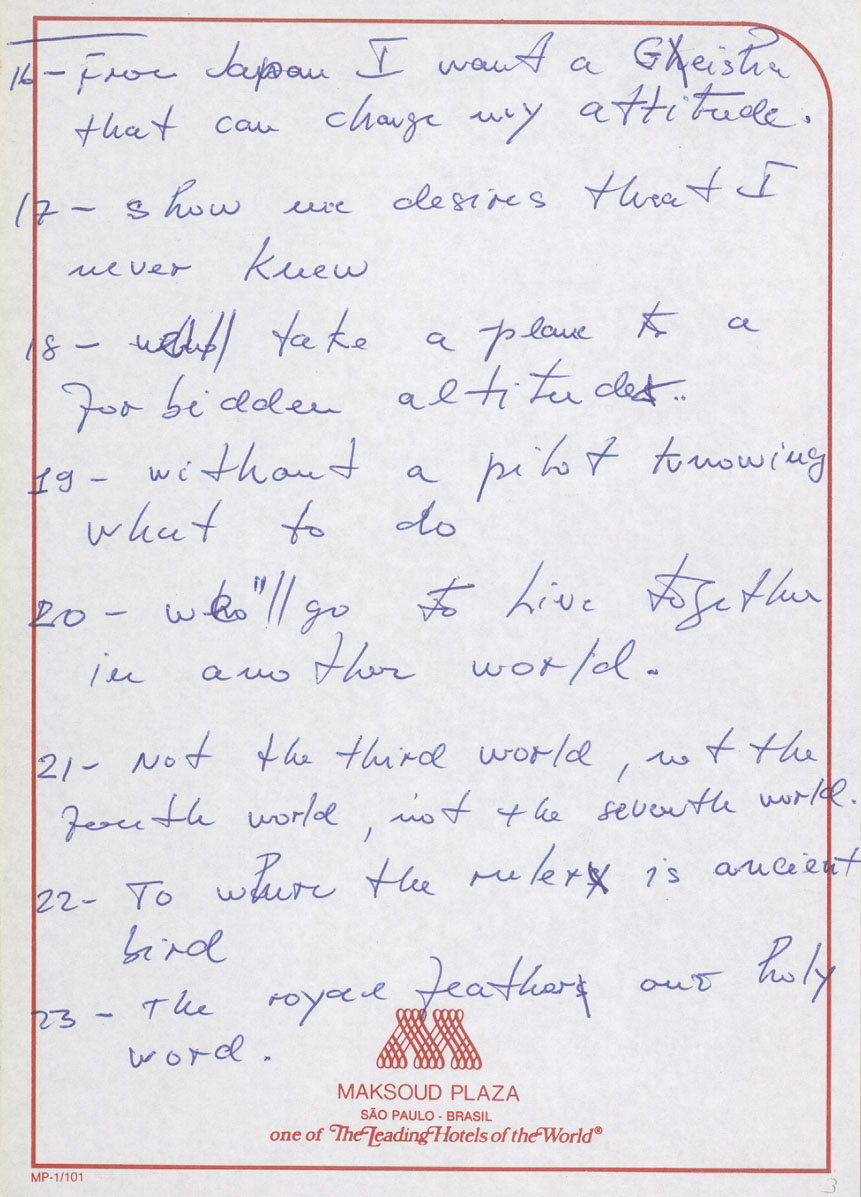 16 - From Japan I want a Geisha
that can change my attitude.
17 - show me desires that I
never knew
18 - take a plane to a
forbidden altitude..
19 - without a pilot knowing
what to do
20 - we'll go to live together
in another world.
21 - Not the third world, not the
fourth world, not the seventh world.
22 - To where the ruler is ancient
bird
23 - The royal feather and holy
word.
MAKSOUD PLAZA
SÃO PAULO - BRASIL
one of The Leading Hotels of the World®
MP-1/101
3